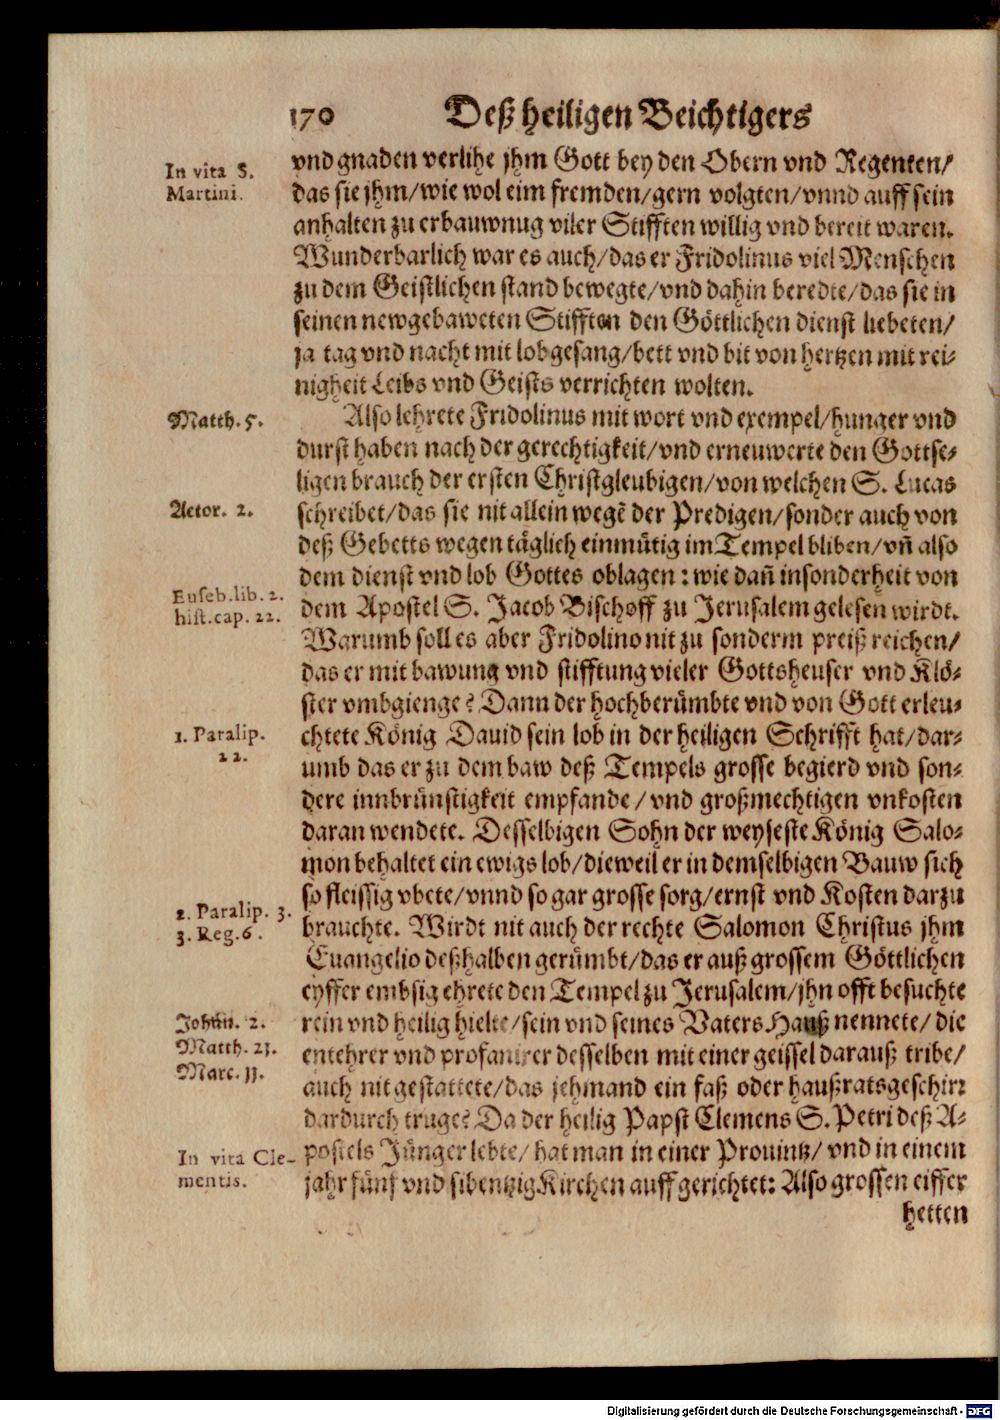 170 Deß heiligen Beichtigers
In vita S.
Martini.
vnd gnaden verlihe jhm Gott bey den Obern vnd Regenten/
das sie jhm/wie wol eim fremden/gern volgten/vnnd auff sein
anhalten zu erbauwnug viler Stifften willig vnd bereit waren.
Wunderbarlich war es auch/das er Fridolinus viel Menschen
zu dem Geistlichen stand bewegte/vnd dahin beredte/das sie in
seinen newgebaweten Stifften den Göttlichen dienst liebeten/
ja tag vnd nacht mit lobgesang/bett vnd bit von hertzen mit rei-
nigheit Leibs vnd Geists verrichten wolten.
Matth. 5.
Also lehrete Fridolinus mit wort vnd exempel/hunger vnd
durst haben nach der gerechtigkeit/vnd erneuwerte den Gottse-
ligen brauch der ersten Christgleubigen/von welchen S. Lucas
Actor. 2.
schreibet/das sie nit allein wegẽ der Predigen/sonder auch von
deß Gebetts wegen täglich einmütig im Tempel bliben/vñ also
dem dienst vnd lob Gottes oblagen: wie dañ insonderheit von
Euseb.lib.2.
hist.cap.22.
dem Apostel S. Jacob Bischoff zu Jerusalem gelesen wirdt.
Warumb soll es aber Fridolino nit zu sonderm preiß reichen/
das er mit bawung vnd stifftung vieler Gottsheuser vnd Klö-
ster vmbgienge? Dann der hochberümbte vnd von Gott erleu-
1. Paralip.
22.
chtete König Dauid sein lob in der heiligen Schrifft hat/dar-
umb das er zu dem baw deß Tempels grosse begierd vnd son-
dere innbrünstigkeit empfande/vnd großmechtigen vnkosten
daran wendete. Desselbigen Sohn der weyseste König Salo-
mon behaltet ein ewigs lob/dieweil er in demselbigen Bauw sich
so fleissig vbete/vnnd so gar grosse sorg/ernst vnd Kosten darzu
2. Paralip. 3.
3. Reg.6.
brauchte. Wirdt nit auch der rechte Salomon Christus jhm
Euangelio deßhalben gerümbt/das er auß grossem Göttlichen
eyffer embsig ehrete den Tempel zu Jerusalem/jhn offt besuchte
Johan. 2.
Matth. 21.
Marc. 11.
rein vnd heilig hielte/sein vnd seines Vaters Hauß nennete/die
entehrer vnd profanirer desselben mit einer geissel darauß tribe/
auch nit gestattete/das jehmand ein faß oder haußratsgeschirr
dardurch truge? Da der heilig Papst Clemens S. Petri deß A-
In vita Cle-
mentis.
postels Jünger lebte/hat man in einer Prouintz/vnd in einem
jahr fünf vnd sibentzig Kirchen auffgerichtet: Also grossen eiffer
hetten
Digitalisierung gefördert durch die Deutsche Forschungsgemeinschaft - DFG